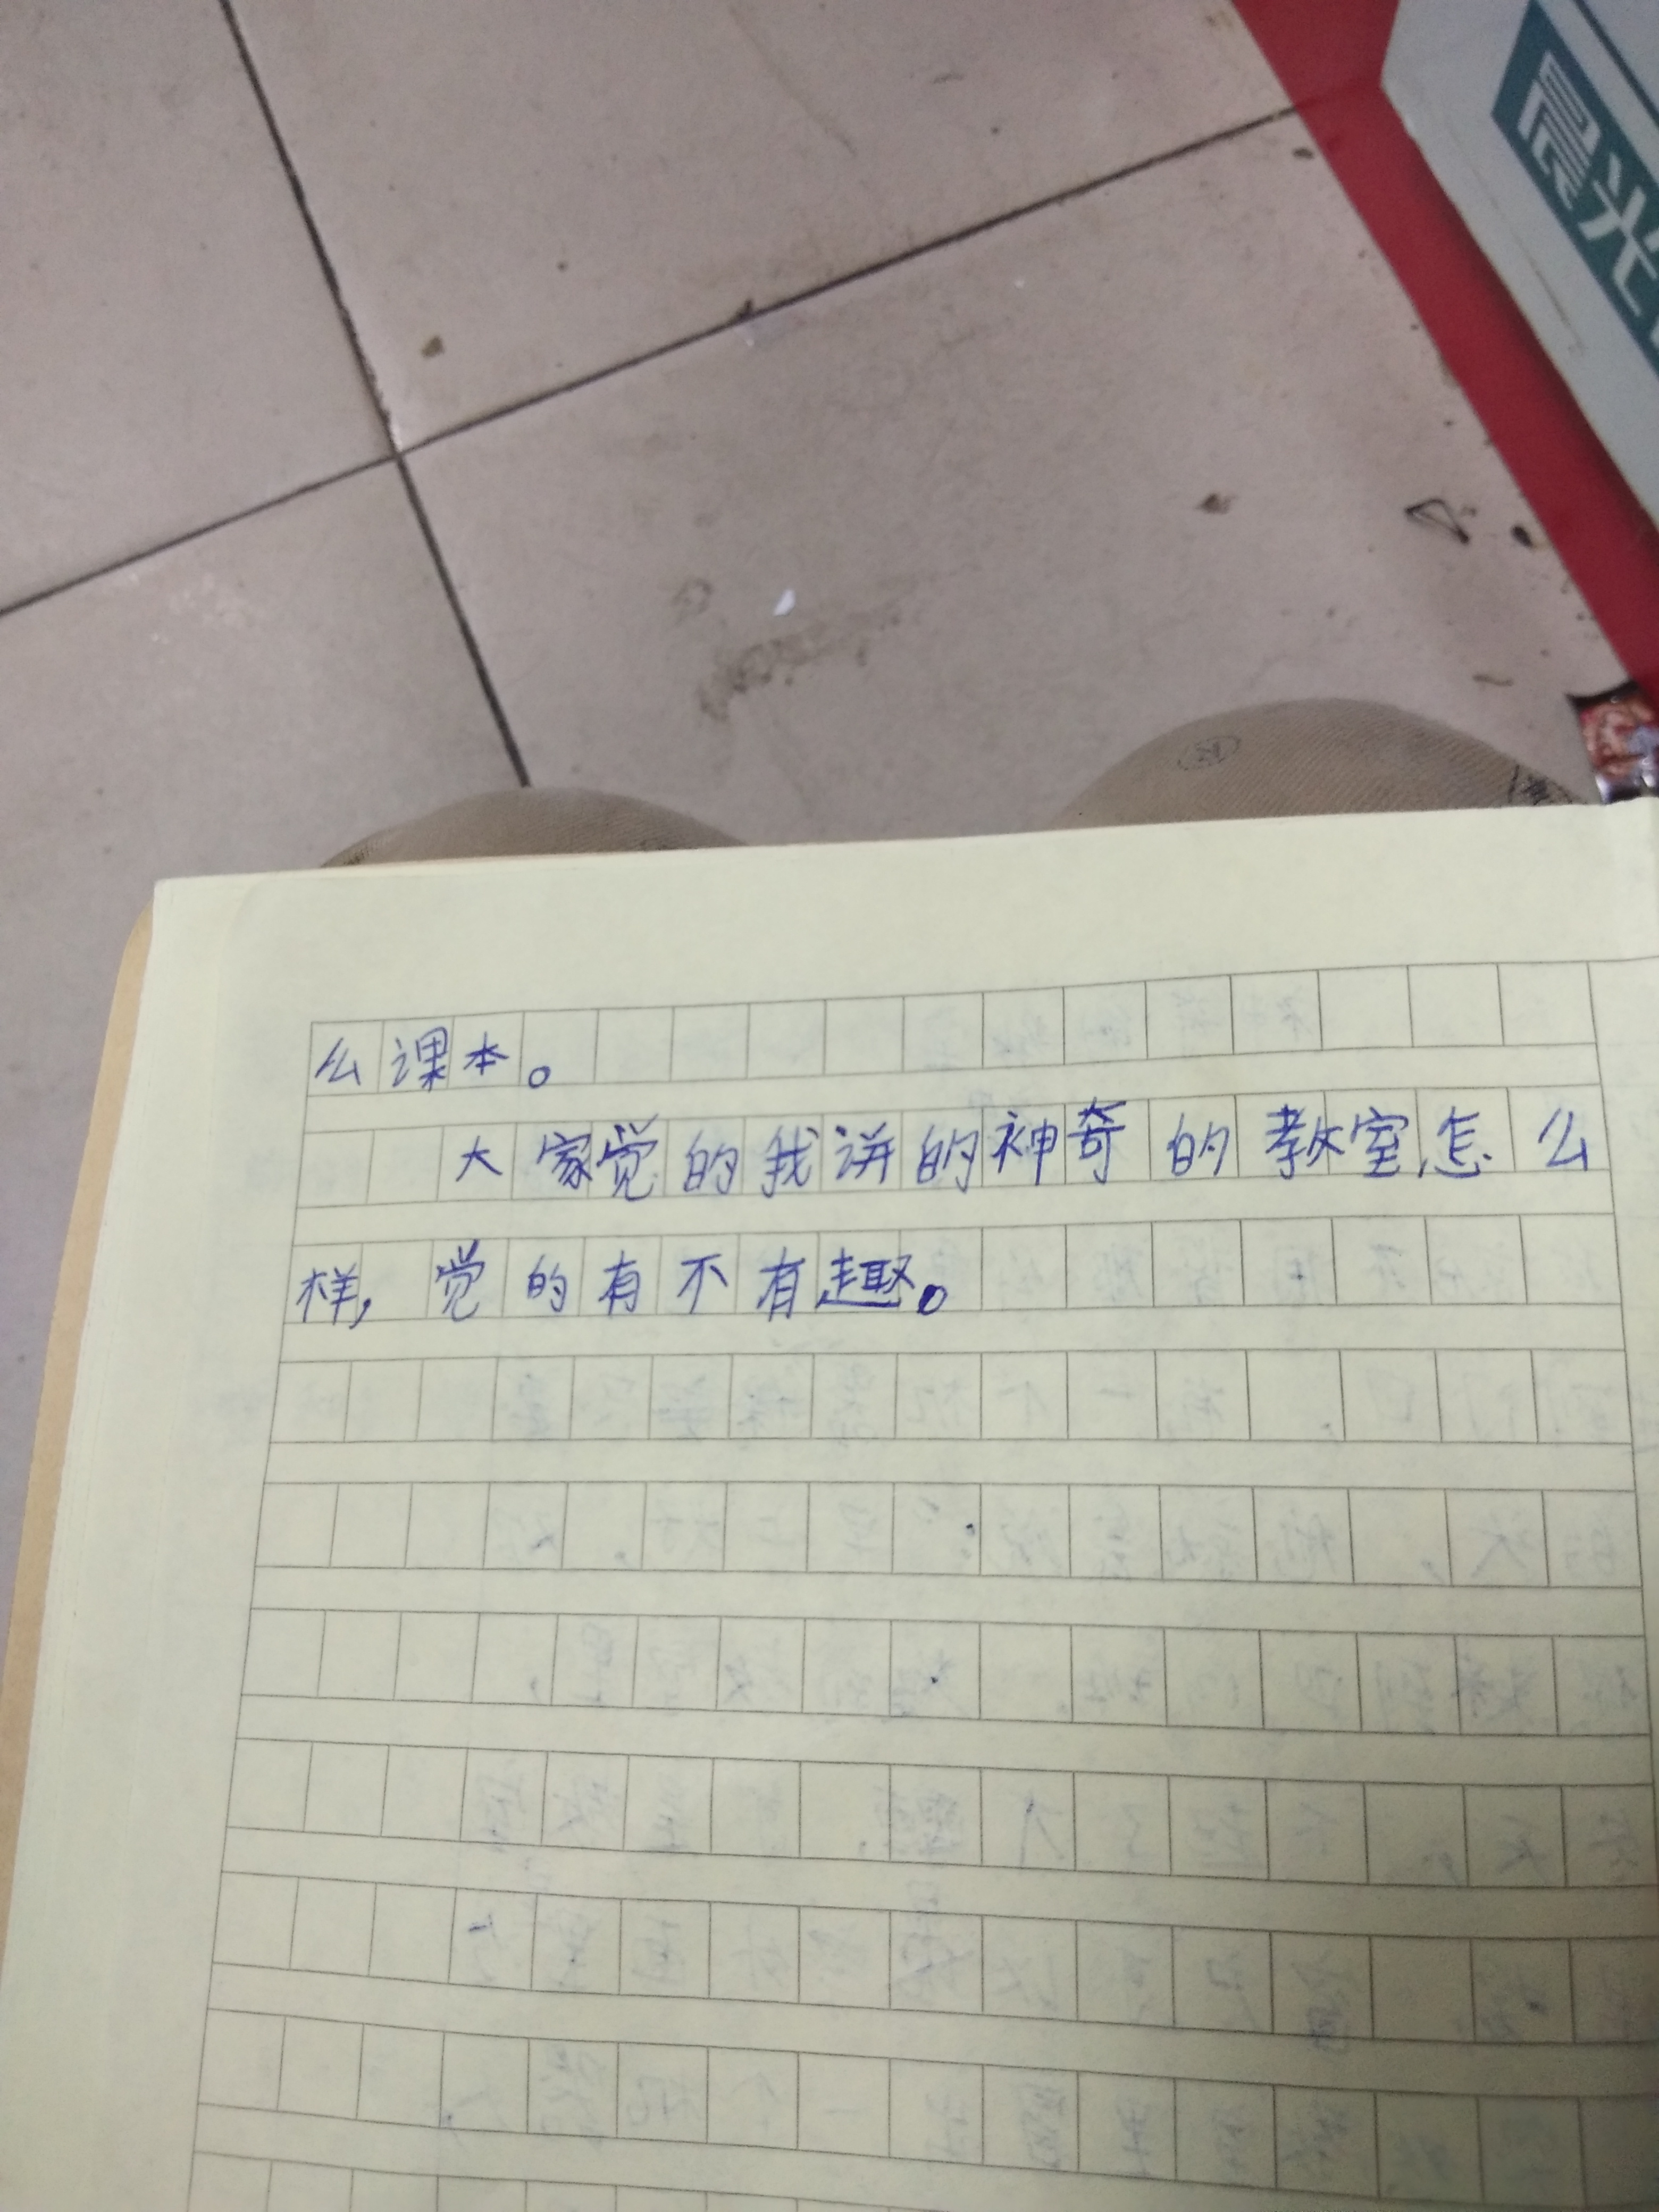 晨光
么课本。
大家觉的我讲的神奇的教室怎么
样，觉的有不有趣。